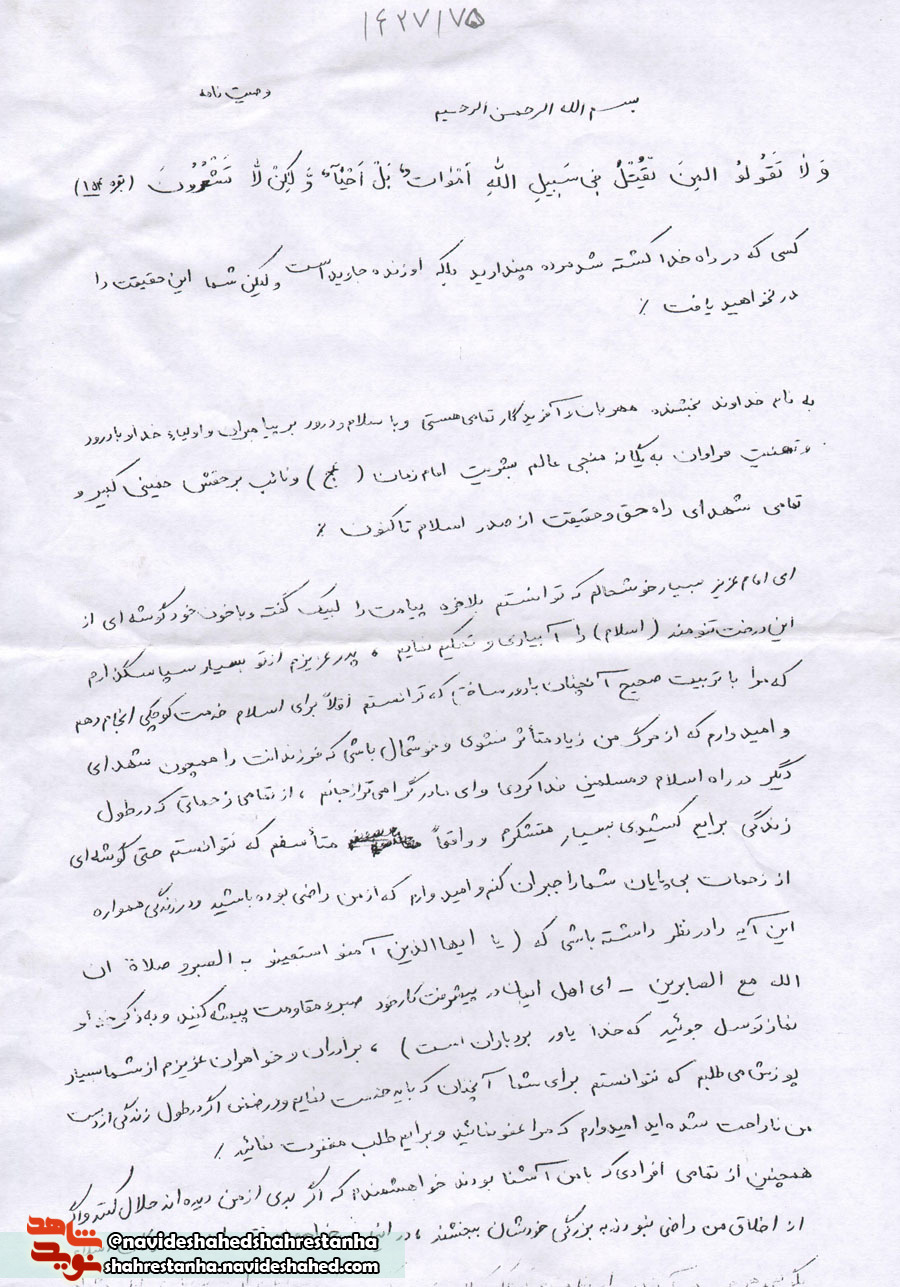 ۱۶۲۷/۷۵
وصیت نامه
بسم الله الرحمن الرحیم
وَ لاٰ تَقُولُو الینَ تُقیُتْلُ فِی سَبِیلِ اللهِ اَمْوٰات بَلْ اَحْیٰآء وَّ لکِنْ لاٰ تَشْعُرُونَ (بقره ۱۵۴)
کسی که در راه خدا کشته شد مرده مپندارید بلکه او زنده جاوید است ولیکن شما این حقیقت را
در نخواهید یافت ٪
به نام خداوند بخشنده مهربان و آفریدگار تمامی هستی و با سلام و درود بر پیامبران و اولیاء خدا و با درود
و تهنیت فراوان به یگانه منجی عالم بشریت امام زمان (عج) و نائب برحقش خمینی کبیر و
تمامی شهدای راه حق و حقیقت از صدر اسلام تا کنون ٪
ای امام عزیز بسیار خوشحالم که توانستم بلاخره پیامت را لبیک گفته و با خون خود گوشه ای از
این درخت تنومند (اسلام) را آبیاری و تحکیم نمایم ، پدر عزیزم از تو بسیار سپاسگذارم
که مرا با تربیت صحیح آنچنان بارور ساختی که توانستم اقلاً برای اسلام خدمت کوچکی انجام دهم
و امیدوارم که از مرگ من زیاد متأثر نشوی و خوشحال باشی که فرزندانت را همچون شهدای
دیگر در راه اسلام و مسلمین فدا کردی و ای مادر گرامی تر از جانم ، از تمامی زحماتی که در طول
زندگی برایم کشیدی بسیار متشکرم و واقعاً متأسفم که نتوانستم حتی گوشه ای
از زحمات بی پایان شما را جبران کنم و امیدوارم که از من راضی بوده باشید و در زندگی همواره
این آیه را در نظر داشته باشی که (یا ایها الذین آمنو استعینو به الصبر و صلاة ان
الله مع الصابرین - ای اهل ایمان در پیشرفت کار خود صبر و مقاومت پیشه کنید و به ذکر خدا و
نماز توسل جوئید که خدا یاور بردباران است) ، برادران و خواهران عزیزم از شما بسیار
پوزش می طلبم که نتوانستم برای شما آنچنان که باید خدمت نمایم و در ضمن اگر در طول زندگی از دست
من ناراحت شده اید امیدوارم که مرا عفو نمائید و برایم طلب مغفرت نمائید ٪
همچنین از تمامی افرادی که با من آشنا بودند خواهشمندم که اگر بدی از من دیده اند حلال کنند و اگر
از اخلاق من راضی نبودند به بزرگی خودشان ببخشند ، در
شاهد
نوید
@navideshahedshahrestanha
shahrestanha.navideshahed.com